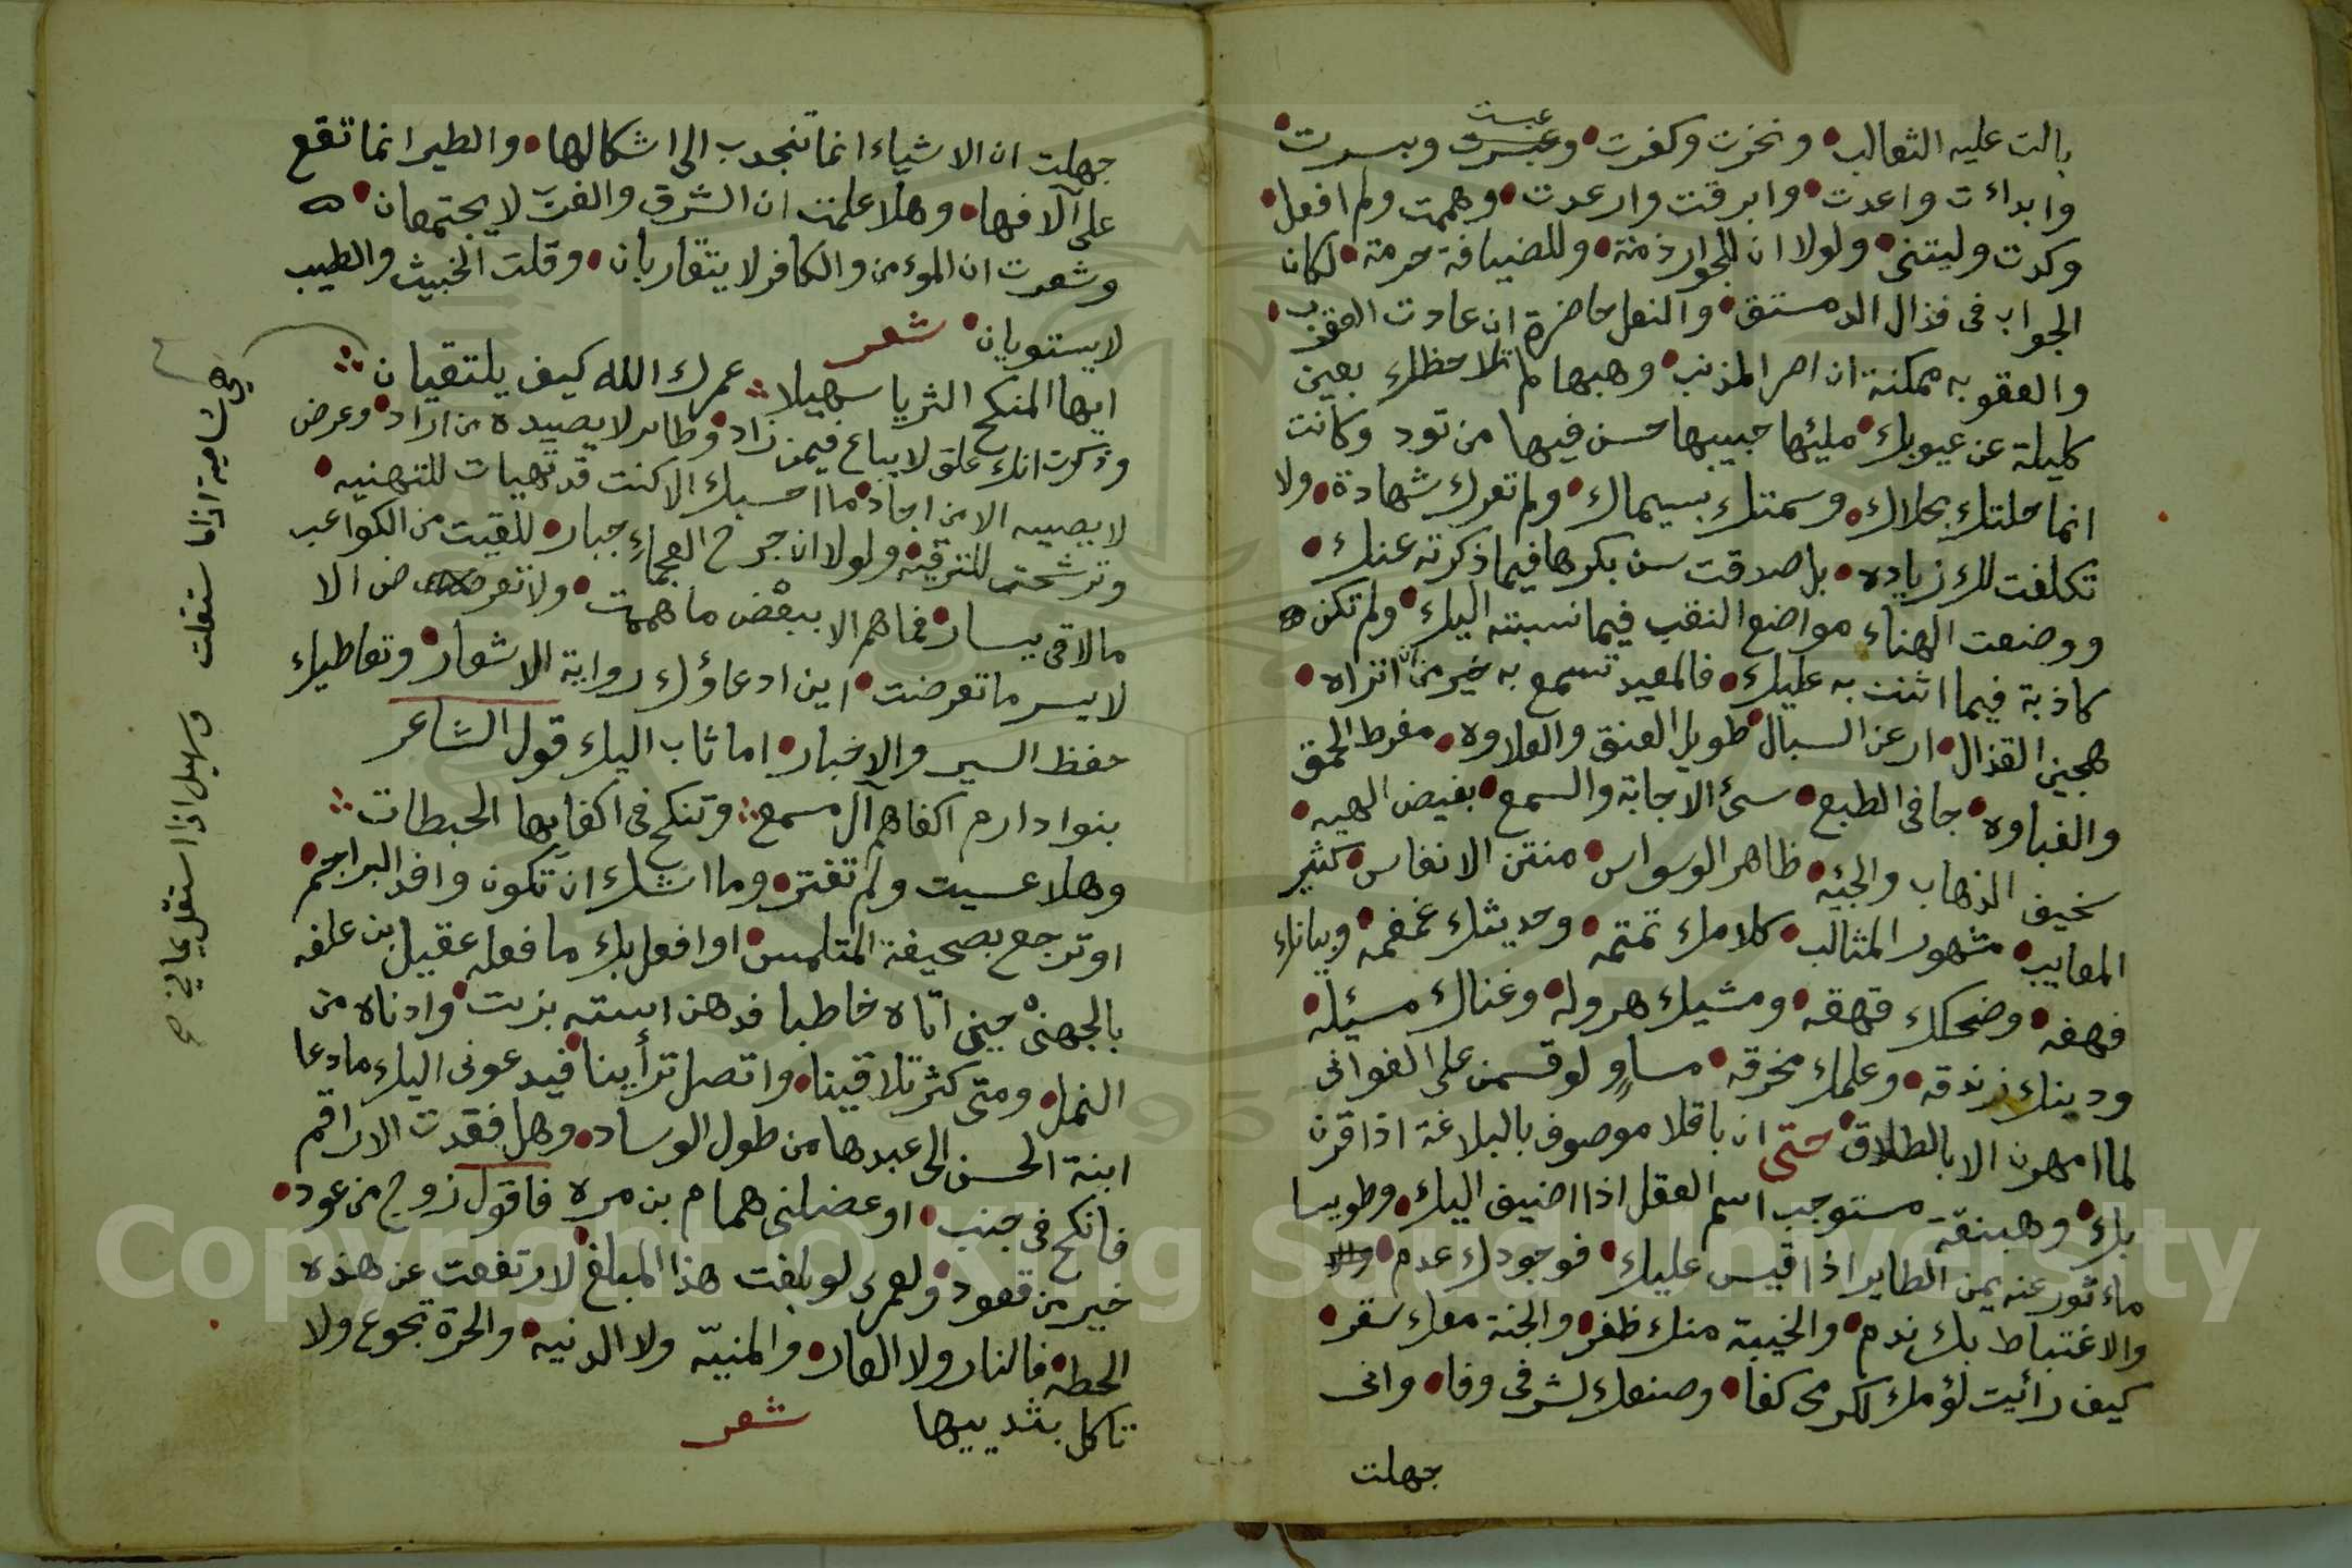 بالت عليه الثعالب • ونخرت وكفرت • وعبست وبسرت •
وابداءت واعدت • وابرقت وارعدت • وهممت ولم افعل •
وكدت وليتنى • ولولا ان للجوار ذمة • وللضيافة حرمة • لكان
الجواب فى قذال الدمستق • والنعل حاضرة ان عادت العقرب •
والعقوبه ممكنة ان اصر المذنب • وهبها لم تلاحظك بعين
كليلة عن عيوبك • مليئها حبيبها حسن فيها من تود وكانت
انما حلتك بحلاك • وسمتك بسيماك • ولم تعرك شهادة • ولا
تكلفت لك زياده • بل صدقت سن بكرها فيما ذكرته عنك •
ووضعت الهناء مواضع النقب فيما نسبته اليك • ولم تكن
كاذبة فيما اثنت به عليك • فالمعيد تسمع به خير من ان تراه •
هجين القذال • ارعن السبال • طويل العنق والعلاوه • مفرط الحمق
والغباوه • جافى الطبع • سئ الاجابة والسمع • بغيض الهيه •
سخيف الذهاب والجئه • ظاهر الوسواس • منتن الانفاس • كثير
المعايب • مشهور المثالب • كلامك تمتمه • وحديثك غمغمه • وبيانك
فهفه • وضحكك قهقه • ومشيك هروله • وغناك مسيئله •
ودينك زندقه • وعلمك مخرقه • مساوٍ لو قسمن على الغوانى
لما امهرن الا بالطلاق • حتى ان باقلا موصوف بالبلاغة اذا قرن
بك • وهبنقة مستوجب اسم العقل اذا اضيف اليك • وطويسا
ماءثور عنه يمن الطاير اذا قيس عليك • فوجودك عدم •
والاغتباط بك ندم • والخيبة منك ظفر • والجنة معك سقر •
كيف رأيت لؤمك لكرمى كفا • وصنعك لشرفى وفا • وانى
جهلت
جهلت ان الاشياء انما تنجدب الى اشكالها • والطير انما تقع
على آلافها • وهلا علمت ان الشرق والغرب لا يجتمعان •
وشعرت ان الموءمن والكافر لا يتقاربان • وقلت الخبيث والطيب
لا يستويان • شعر
ايها المنكح الثريا سهيلا ∴ عمرك الله كيف يلتقيان ∴
وذكرت انك علق لا يباع فيمن زاد • وطاير لا يصيده من اراد • وغرض
لا يصيبه الا من اجاد • ما احسبك الا كنت قد تهيات للتهنيه •
وترشحت للترقيه • ولولا ان جرح العجماءِ جبار • للقيت من الكواعب
مالاقى يسار • فما هم الا ببعض ما هممت • ولا تعرض من الا
لايسر ما تعرضت • اين ادعاؤك رواية الاشعار • وتعاطيك
حفظ السير والاخبار • اما ثاب اليك قول الشاعر
بنوا دارم اكفاهم آل مسمع ∴ وتنكح فى اكفايها الحبطات ∴
وهلا عسيت ولم تغتر • وما اشك ان تكون وافد البراجم •
او ترجع بصحيفة المتلمس • او افعل بك ما فعله عقيل بن علفه
بالجهنىْ حينى اتاه خاطبا فدهن استه بزيت • وادناه من
النمل • ومتى كثر تلاقينا • واتصل ترأينا • فيدعونى اليك ما دعا
ابنة الحسن الى عبدها من طول الوساد • وهل فقدت الاراقم
فانكح فى جنب • او عضلنى همام بن مره فاقول زوج من عود •
خير من قعود • ولعمرى لو بلغت هذا المبلغ • لارتفعت عن هذه
الحطه • فالنار ولا العار • والمنيّه ولا الدنيه • والحرة تجوع ولا
تاكل بثدييها شعر
هى شامية اذا ما ستقلت وسهيل اذا استقل يمانى